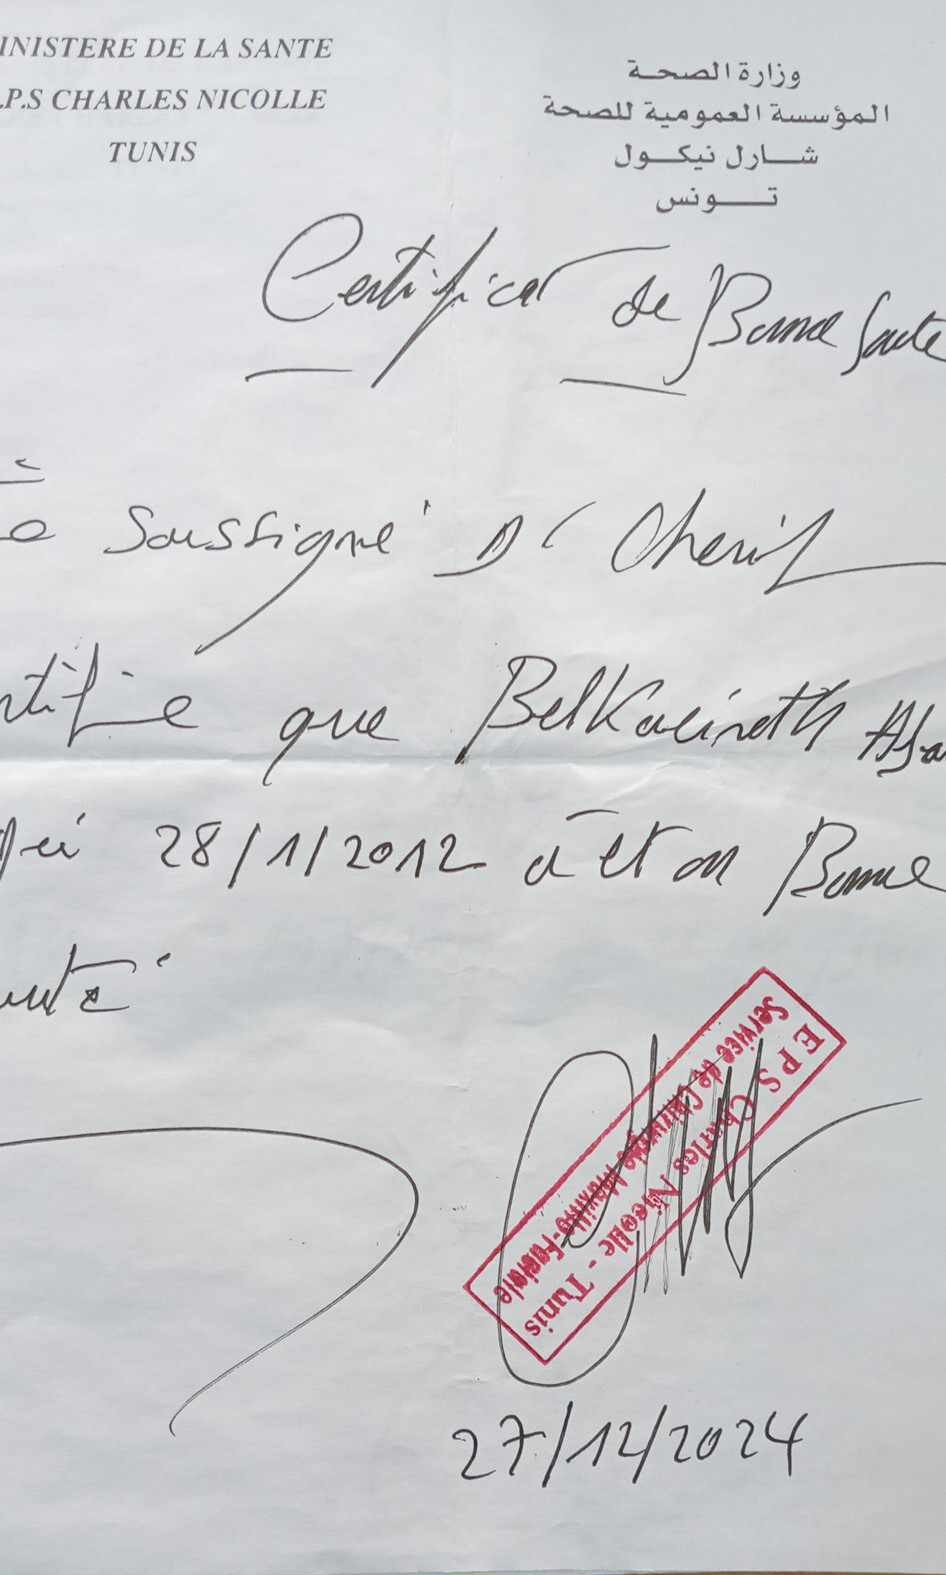 INISTERE DE LA SANTE
.P.S CHARLES NICOLLE
TUNIS
وزارة الصحة
المؤسسة العمومية للصحة
شارل نيكول
تونس
Certificat de Bonne Sante
Soussigné Dr Cherif
rtifie que
28/1/2012 Bonne
E P S Charles Nicolle - Tunis
Service de Chirurgie Maxillo-Faciale
27/12/2024